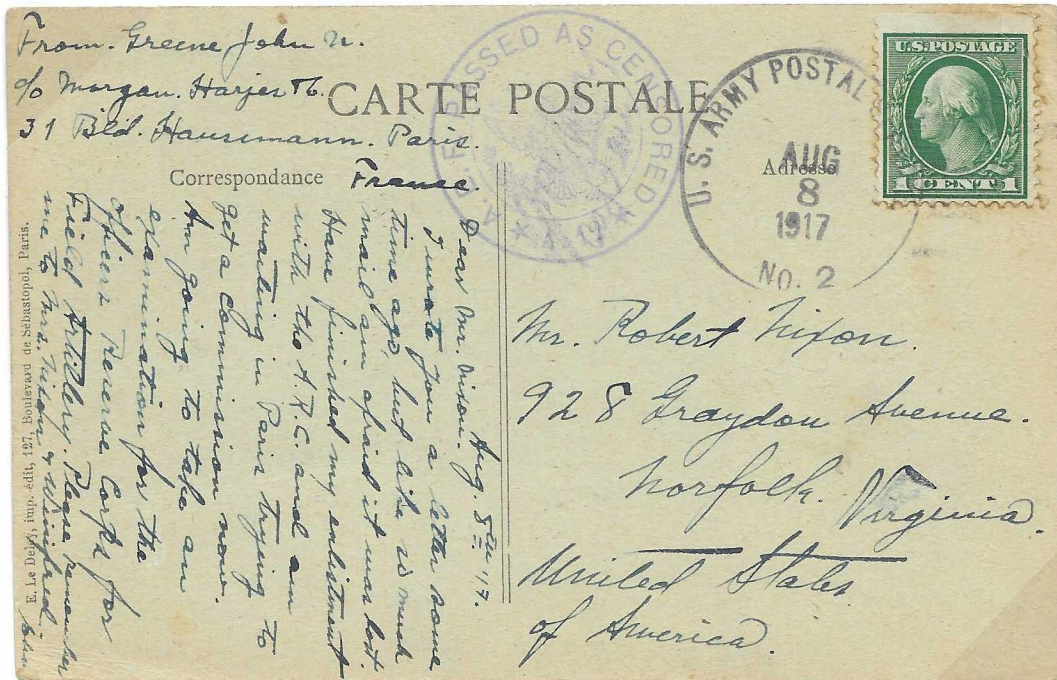 From. Greene John N.
c/o Morgan. Harjes &
31 Bld. Hausemann. Paris.
France.
CARTE POSTALE
Correspondance
Adresse
A.E.F. PASSED AS CENSORED
U.S. ARMY POSTAL
AUG
8
1917
NO. 2
U.S. POSTAGE
1 CENT 1
Aug 8th 17.
Dear Mr. Nixon.
I wrote you a letter some
time ago, but like so much
mail am afraid it was lost.
Have finished my enlistment
with the A.R.C. and am
waiting in Paris trying to
get a commission now.
Am going to take an
examination for the
officers Reserve Corps for
Field Artillery. Please remember
me to Mrs. Nixon & Winifred.
John
Mr. Robert Nixon.
928 Graydon Avenue.
Norfolk. Virginia.
United States
of America.
E. Le Deley, imp.-édit, 127, Boulevard de Sébastopol, Paris.